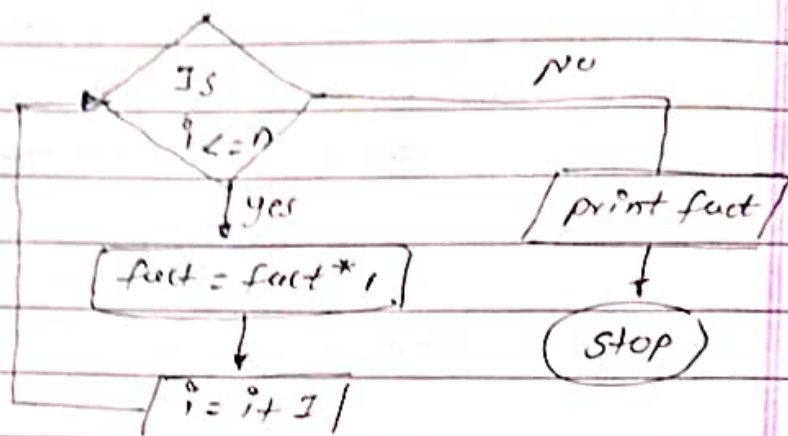 Is
i <= n
NO
yes
print fact
fact = fact *
stop
i = i + I